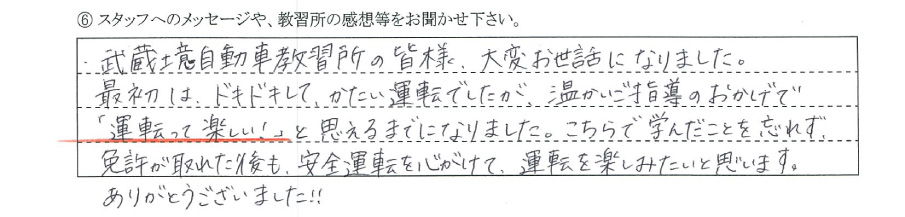 ⑥ スタッフへのメッセージや、教習所の感想等をお聞かせ下さい。
武蔵境自動車教習所の皆様、大変お世話になりました。
最初は、ドキドキして、かたい運転でしたが、温かいご指導のおかげで
「運転って楽しい！」と思えるまでになりました。こちらで学んだことを忘れず、
免許が取れた後も、安全運転を心がけて、運転を楽しみたいと思います。
ありがとうございました!!